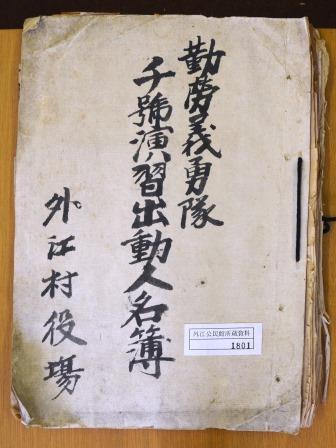 勤勞義勇隊
千號演習出動人名簿
外江村役場
外江公民館所蔵資料
1801